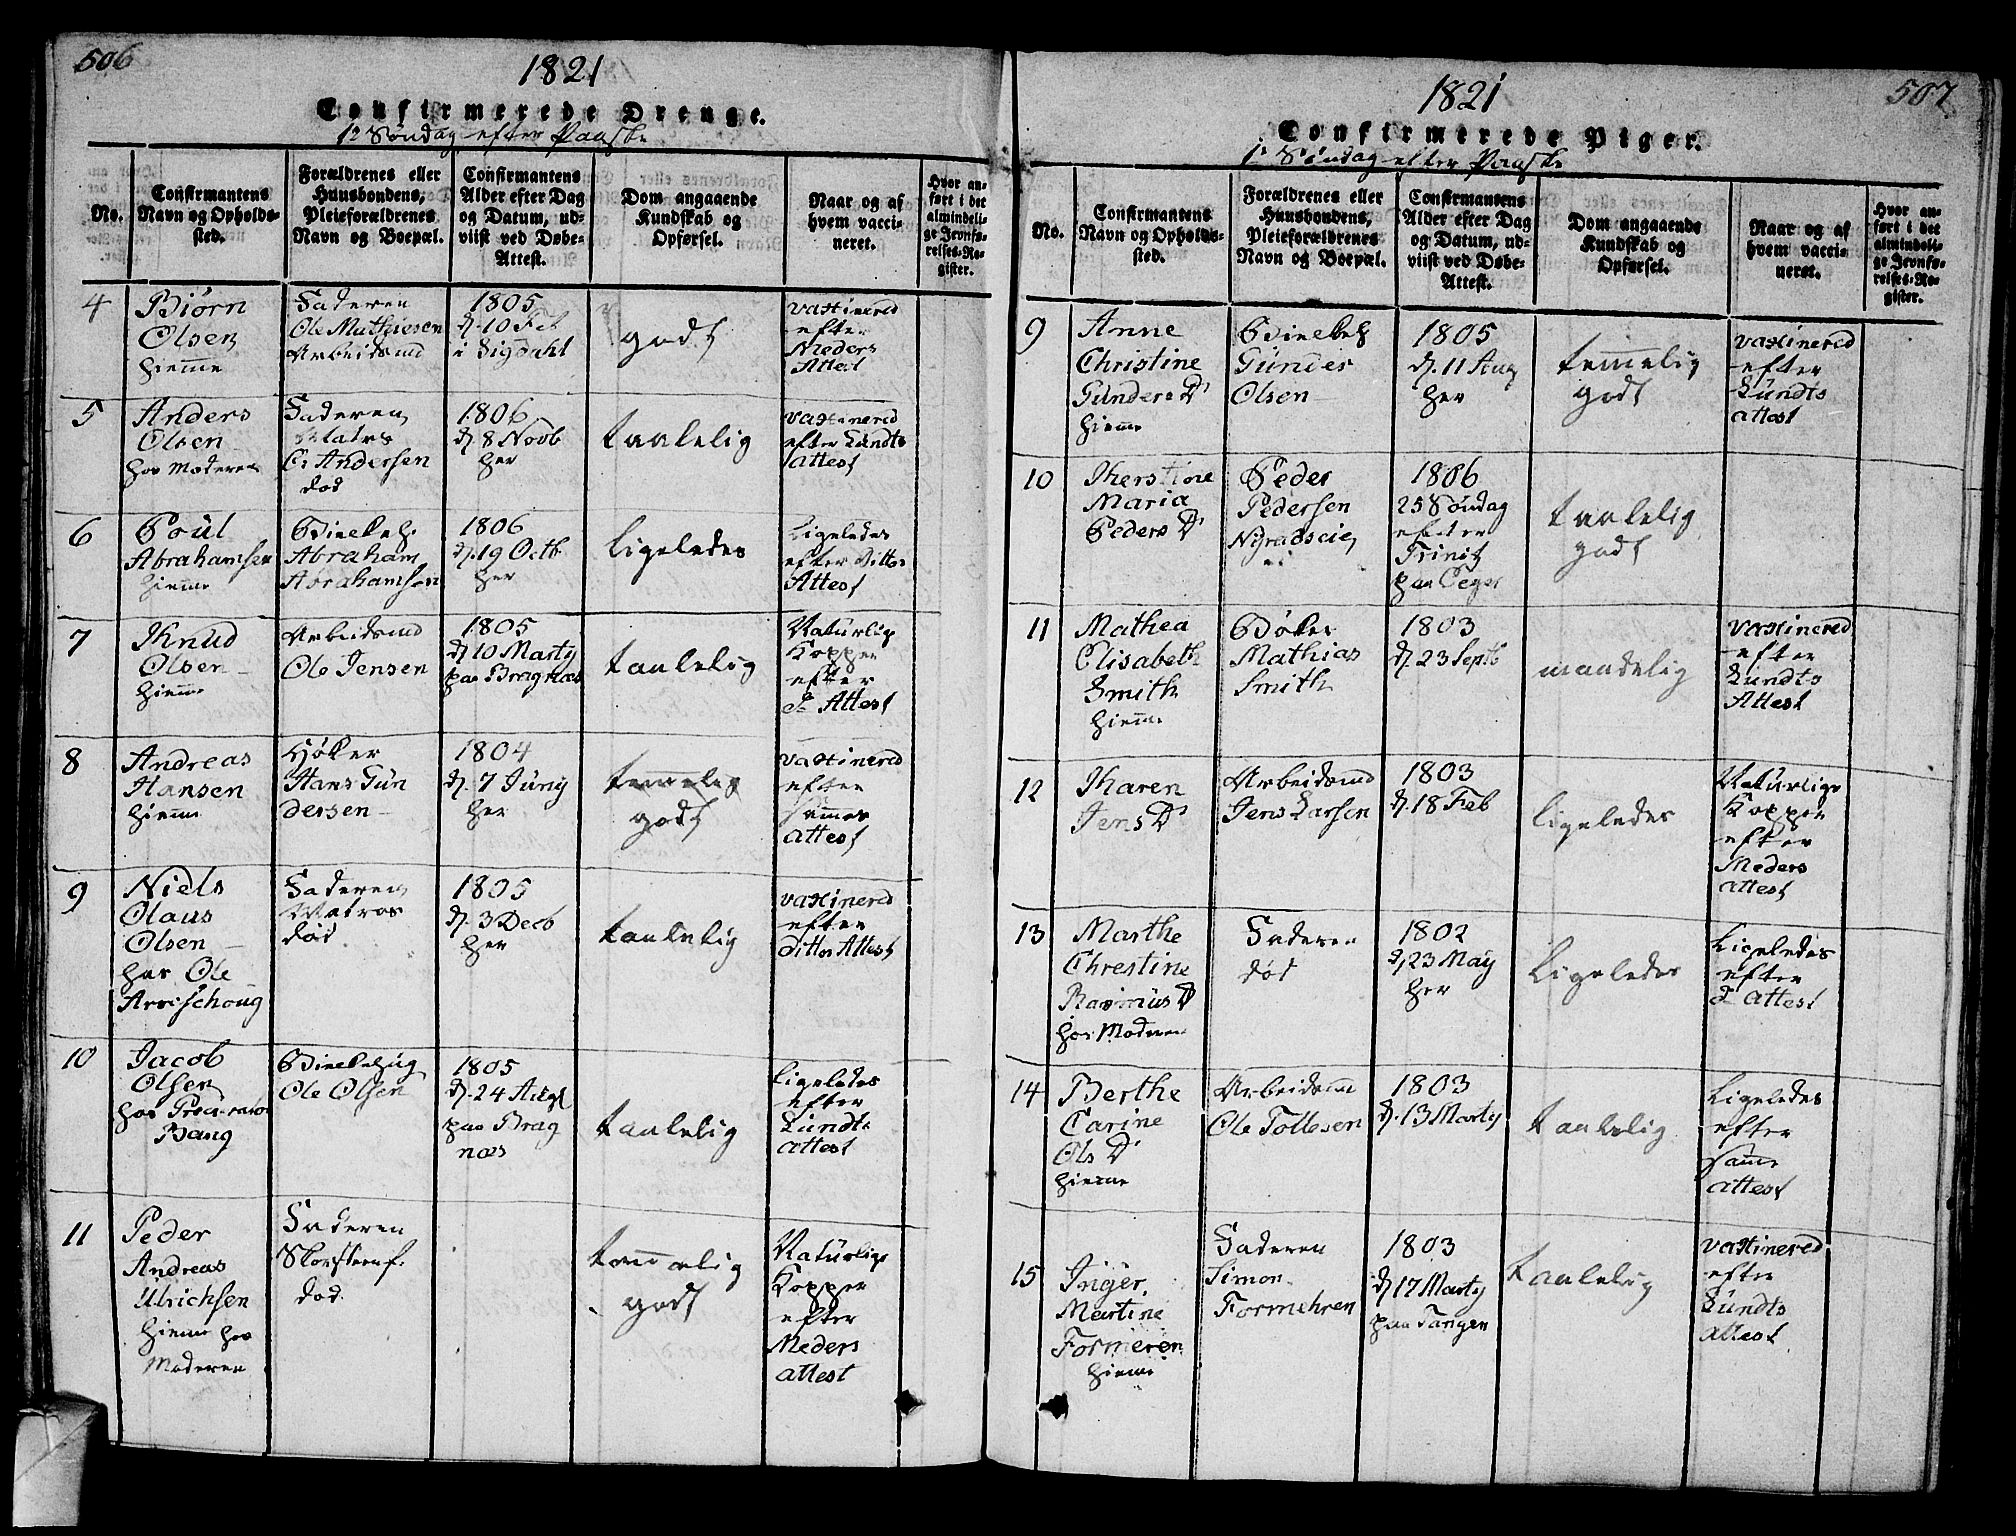 506
1821
Confirmerede Drenge.
1e Söndag efter Paaske
No.
Confirmantens
Navn og Opholds-
sted.
Forældrenes eller
Huusbondens,
Pleieforældrenes
Navn og Boepæl.
Confirmantens
Alder efter Dag
og Datum, ud-
viist ved Døbe-
Attest.
Dom angaaende
Kundskab og
Opførsel.
Naar og af
hvem vacci-
neret.
Hvor an-
ført i det
almindeli-
ge Jevnfø-
relses-Re-
gister.
4
Biørn
Olsen
hieme
Faderen
Ole Mathiesen
Arbeidsmd
1805
d. 10 Feb
i Sigdahl
godt
vaxinered
efter
Meders
Attest
5
Anders
Olsen
hos Moderen
Faderen
Matrs
Ci Andersen
død
1806
d. 8 Novb
her
taalelig
vaxinered
efter Lundts
attest
6
Poul
Abrahamsen
hieme
Abraham
Abrahamsen
1806
d. 19 Octb
her
ligeledes
Ligeledes
efter ditto
Attest
7
Knud
Olsen
hieme
Arbeidsmd
Ole Jensen
1805
d. 10 Marty
paa Bragnæs
taalelig
Naturlig
Kopper
efter
d: Attest
8
Andreas
Hansen
hieme
Høker
Hans Gun
dersen
1804
d. 7 Juny
her
temelig
godt
vaxinered
efter
samme
attest
9
Niels
Olaus
Olsen
hos Ole
Faderen
Matros
død
1805
d. 3 Decb
her
taalelig
vaxinered
efter
ditto Attest
10
Jacob
Olsen
hos Procurator
Bang
Ole Olsen
1805
d. 24 Augt
paa Brag
næs
taalelig
Ligeledes
efter
Lundts
attest
11
Peder
Andreas
Ulrichsen
hieme hos
Moderen
Faderen
Skorsteenf.
død
temmelig
godt
Naturlige
Kopper
efter
Meders
attest
507
1821
Confirmerede Piger.
1e Söndag efter Paaske
No.
Confirmantens
Navn og Opholds-
sted.
Forældrenes eller
Huusbondens,
Pleieforældrenes
Navn og Boepæl.
Confirmantens
Alder efter Dag
og Datum, ud-
viist ved Døbe-
Attest.
Dom angaaende
Kundskab og
Opførsel.
Naar og af
hvem vacci-
neret.
Hvor an-
ført i det
almindeli-
ge Jevnfø-
relses-Re-
gister.
9
Anne
Christine
Gunders D
hieme
Gunder
Olsen
1805
d. 11 Aug
her
temmelig
godt
vaxinered
efter
Lundts
attest
10
Kerstine
Maria
Peders D
Peder
Pedersen
1806
25 Söndag
efter
Trinit
paa Eger
taalelig
godt
11
Mathea
Elisabeth
Smith
hieme
Bøker
Mathias
Smith
1803
d. 23 Septb
maadelig
vaxinered
efter
Lundts
Attest
12
Karen
Jens D
Arbeidsmd
Jens Larsen
1803
d. 18 Feb
ligeledes
Naturlige
Kopper
efter
Meders
attest
13
Marthe
Chrestine
Rasmus D
hos Moderen
Faderen
død
1802
d. 23 May
her
Ligeledes
Ligeledes
efter
d: attest
14
Berthe
Carine
Ols D
hieme
Arbeidsm
Ole Tollesen
1803
d. 13 Marty
taalelig
Ligeledes
efter
samme
attest
15
Inger
Martine
Formeren
hieme
Faderen
Simon
Formehren
1803
d. 17 Marty
paa Tangen
taalelig
vaxinered
efter
Lundts
attest